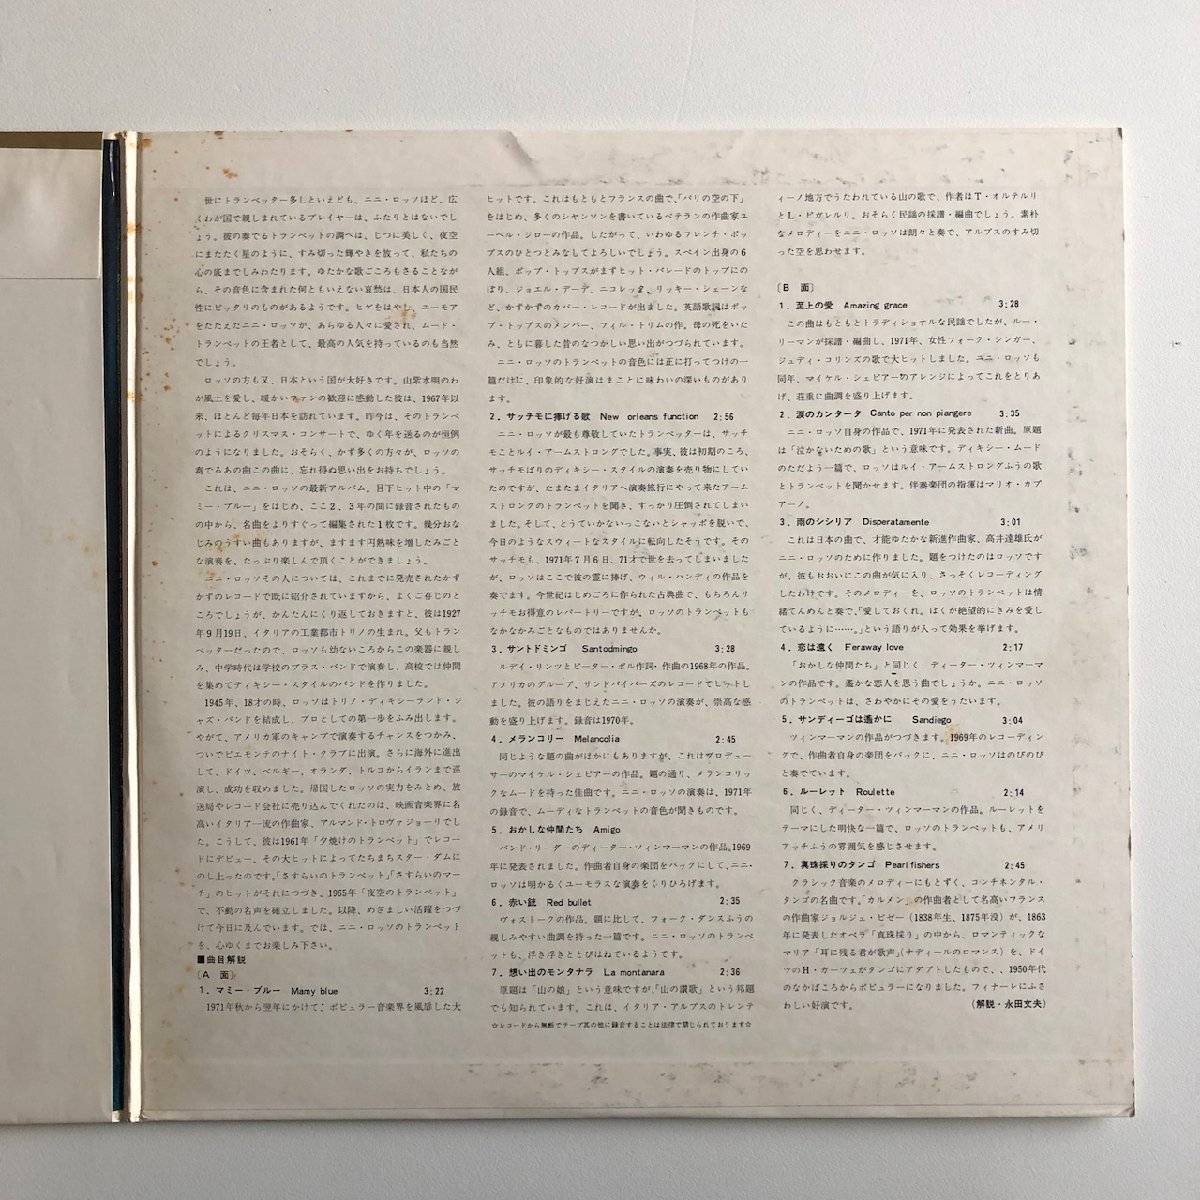 世にトランペッター多しといえども、ニニ・ロッソほど、広
くわが国で親しまれているプレイヤーは、ふたりとはないでし
ょう。彼の奏でるトランペットの調べは、じつに美しく、夜空
にまたたく星のように、すみ切った輝やきを放って、私たちの
心の底までしみわたります。ゆたかな歌ごころもさることなが
ら、その音色に含まれた何ともいえない哀愁は、日本人の国民
性にピッタリのものがあるようです。ヒゲをはやし、ユーモア
をたたえたニニ・ロッソが、あらゆる人々に愛され、ムード・
トランペットの王者として、最高の人気を持っているのも当然
でしょう。
ロッソの方も又、日本という国が大好きです。山紫水明のわ
が風土を愛し、暖かいファンの歓迎に感動した彼は、1967年以
来、ほとんど毎年日本を訪れています。昨今は、そのトランペ
ットによるクリスマス・コンサートで、ゆく年を送るのが恒例
のようになりました。おそらく、かず多くの方々が、ロッソの
奏でるあの曲この曲に、忘れ得ぬ思い出をお持ちでしょう。
これは、ニニ・ロッソの最新アルバム。目下ヒット中の「マ
ミー・ブルー」をはじめ、ここ2、3年の間に録音されたもの
の中から、名曲をよりすぐって編集された1枚です。幾分おな
じみのうすい曲もありますが、ますます円熟味を増したみごと
な演奏を、たっぷり楽しんで頂くことができましょう。
ニニ・ロッソその人については、これまでに発売されたかず
かずのレコードで既に紹介されていますから、よくご存じのと
ころでしょうが、かんたんにくり返しておきますと、彼は1927
年9月19日、イタリアの工業都市トリノの生まれ。父もトラン
ペッターだったので、ロッソも幼ないころからこの楽器に親し
み、中学時代は学校のブラス・バンドで演奏し、高校では仲間
を集めてディキシー・スタイルのバンドを作りました。
1945年、18才の時、ロッソはトリノ・ディキシーランド・ジ
ャズ・バンドを結成し、プロとしての第一歩をふみ出します。
やがて、アメリカ軍のキャンプで演奏するチャンスをつかみ、
ついでピエモンテのナイト・クラブに出演。さらに海外に進出
して、ドイツ、ベルギー、オランダ、トルコからイランまで巡
演し、成功を収めました。帰国したロッソの実力をみとめ、放
送局やレコード会社に売り込んでくれたのは、映画音楽界に名
高いイタリア一流の作曲家、アルマンド・トロヴァジョーリでし
た。こうして、彼は1961年「夕焼けのトランペット」でレコー
ドにデビュー、その大ヒットによってたちまちスター・ダムに
のし上ったのです。「さすらいのトランペット」「さすらいのマー
チ」のヒットがそれにつづき、1965年「夜空のトランペット」
で、不動の名声を確立しました。以降、めざましい活躍をつづ
けて今日に及んでいます。では、ニニ・ロッソのトランペット
を、心ゆくまでお楽しみ下さい。
■曲目解説
〔A 面〕
1. マミー・ブルー Mamy blue 3:22
1971年秋から翌年にかけて、ポピュラー音楽界を風靡した大
ヒットです。これはもともとフランスの曲で、「パリの空の下」
をはじめ、多くのシャンソンを書いているベテランの作曲家ユ
ーベル・ジローの作品。したがって、いわゆるフレンチ・ポッ
プスのひとつとみなしてよろしいでしょう。スペイン出身の6
人組、ポップ・トップスがまずヒット・パレードのトップにの
ぼり、ジョエル・デーデ、ニコレッタ、リッキー・シェーンな
ど、かずかずのカバー・レコードが出ました。英語歌詞はポッ
プ・トップスのメンバー、フィル・トリムの作。母の死をいた
み、ともに暮した昔のなつかしい思い出がつづられています。
ニニ・ロッソのトランペットの音色には正に打ってつけの一
篇だけに、印象的な好演はまことに味わいの深いものがありま
す。
2. サッチモに捧げる歌 New orleans function 2:56
ニニ・ロッソが最も尊敬していたトランペッターは、サッチ
モことルイ・アームストロングでした。事実、彼は初期のころ、
サッチモばりのディキシー・スタイルの演奏を売り物にしてい
たのですが、たまたまイタリアへ演奏旅行にやって来たアーム
ストロングのトランペットを聞き、すっかり圧倒されてしまい
ました。そして、とうていかないっこないとシャッポを脱いで、
今日のようなスウィートなスタイルに転向したそうです。その
サッチモも、1971年7月6日、71才で世を去ってしまいました
が、ロッソはここで彼の霊に捧げ、ウィル・ハンディの作品を
奏でます。今世紀はじめごろに作られた古典曲で、もちろんサ
ッチモお得意のレパートリーですが、ロッソのトランペットも
なかなかみごとなものではありませんか。
3. サントドミンゴ Santodmingo 3:28
ルディ・リンツとピーター・ボル作詞・作曲の1968年の作品。
アメリカのグループ、サンドパイパーズのレコードでヒットし
ました。彼の語りをまじえたニニ・ロッソの演奏が、崇高な感
動を盛り上げます。録音は1970年。
4. メランコリー Melancolia 2:45
同じような題の曲がほかにもありますが、これはプロデュー
サーのマイケル・シェピアーの作品。題の通り、メランコリッ
クなムードを持った佳曲です。ニニ・ロッソの演奏は、1971年
の録音で、ムーディなトランペットの音色が聞きものです。
5. おかしな仲間たち Amigo
バンド・リーダーのディーター・ツィンマーマンの作品。1969
年に発表されました。作曲者自身の楽団をバックにして、ニニ・
ロッソは明かるくユーモラスな演奏をくりひろげます。
6. 赤い銃 Red bullet 2:35
ヴォストークの作品。題に比して、フォーク・ダンスふうの
親しみやすい曲調を持った一篇です。ニニ・ロッソのトランペ
ットも、浮き浮きととびはねているようです。
7. 想い出のモンタナラ La montanara 2:36
原題は「山の娘」という意味ですが、「山の讃歌」という邦題
でも知られています。これは、イタリア・アルプスのトレンテ
☆レコードから無断でテープ其の他に録音することは法律で禁じられております☆
ィーノ地方でうたわれている山の歌で、作者はT・オルテルリ
とL・ピガレルリ。おそらく民謡の採譜・編曲でしょう。素朴
なメロディーをニニ・ロッソは朗々と奏で、アルプスのすみ切
った空を思わせます。
〔B 面〕
1. 至上の愛 Amazing grace 3:28
この曲はもともとトラディショナルな民謡でしたが、ルー・
リーマンが採譜・編曲し、1971年、女性フォーク・シンガー、
ジュディ・コリンズの歌で大ヒットしました。ニニ・ロッソも
同年、マイケル・シェピアーのアレンジによってこれをとりあ
げ、荘重に曲調を盛り上げます。
2. 涙のカンタータ Canto per non piangere 3:35
ニニ・ロッソ自身の作品で、1971年に発表された新曲。原題
は「泣かないための歌」という意味です。ディキシー・ムード
のただよう一篇で、ロッソはルイ・アームストロングふうの歌
とトランペットを聞かせます。伴奏楽団の指揮はマリオ・カプ
アーノ。
3. 雨のシシリア Disperatamente 3:01
これは日本の曲で、才能ゆたかな新進作曲家、高井達雄氏が
ニニ・ロッソのために作りました。題をつけたのはロッソです
が、彼もおおいにこの曲が気に入り、さっそくレコーディング
したわけです。そのメロディーを、ロッソのトランペットは情
緒てんめんと奏で、「愛しておくれ。ぼくが絶望的にきみを愛し
ているように……。」という語りが入って効果を挙げます。
4. 恋は遠く Feraway love 2:17
「おかしな仲間たち」と同じく ディーター・ツィンマーマ
ンの作品です。遥かな恋人を思う曲でしょうか。ニニ・ロッソ
のトランペットは、さわやかにその愛をうたいます。
5. サンディーゴは遙かに Sandiego 3:04
ツィンマーマンの作品がつづきます。1969年のレコーディン
グで、作曲者自身の楽団をバックに、ニニ・ロッソはのびのび
と奏でています。
6. ルーレット Roulette 2:14
同じく、ディーター・ツィンマーマンの作品。ルーレットを
テーマにした明快な一篇で、ロッソのトランペットも、アメリ
アッチふうの雰囲気を感じさせます。
7. 真珠採りのタンゴ Pearl fishers 2:45
クラシック音楽のメロディーにもとずく、コンチネンタル・
タンゴの名曲です。「カルメン」の作曲者として名高いフランス
の作曲家ジョルジュ・ビゼー(1838年生、1875年没)が、1863
年に発表したオペラ「真珠採り」の中から、ロマンティックな
アリア「耳に残る君が歌声」(ナディールのロマンス)を、ドイ
ツのH・ガーツェがタンゴにアダプトしたもので、、1950年代
のなかばころからポピュラーになりました。フィナーレにふさ
わしい好演です。 (解説・永田文夫)